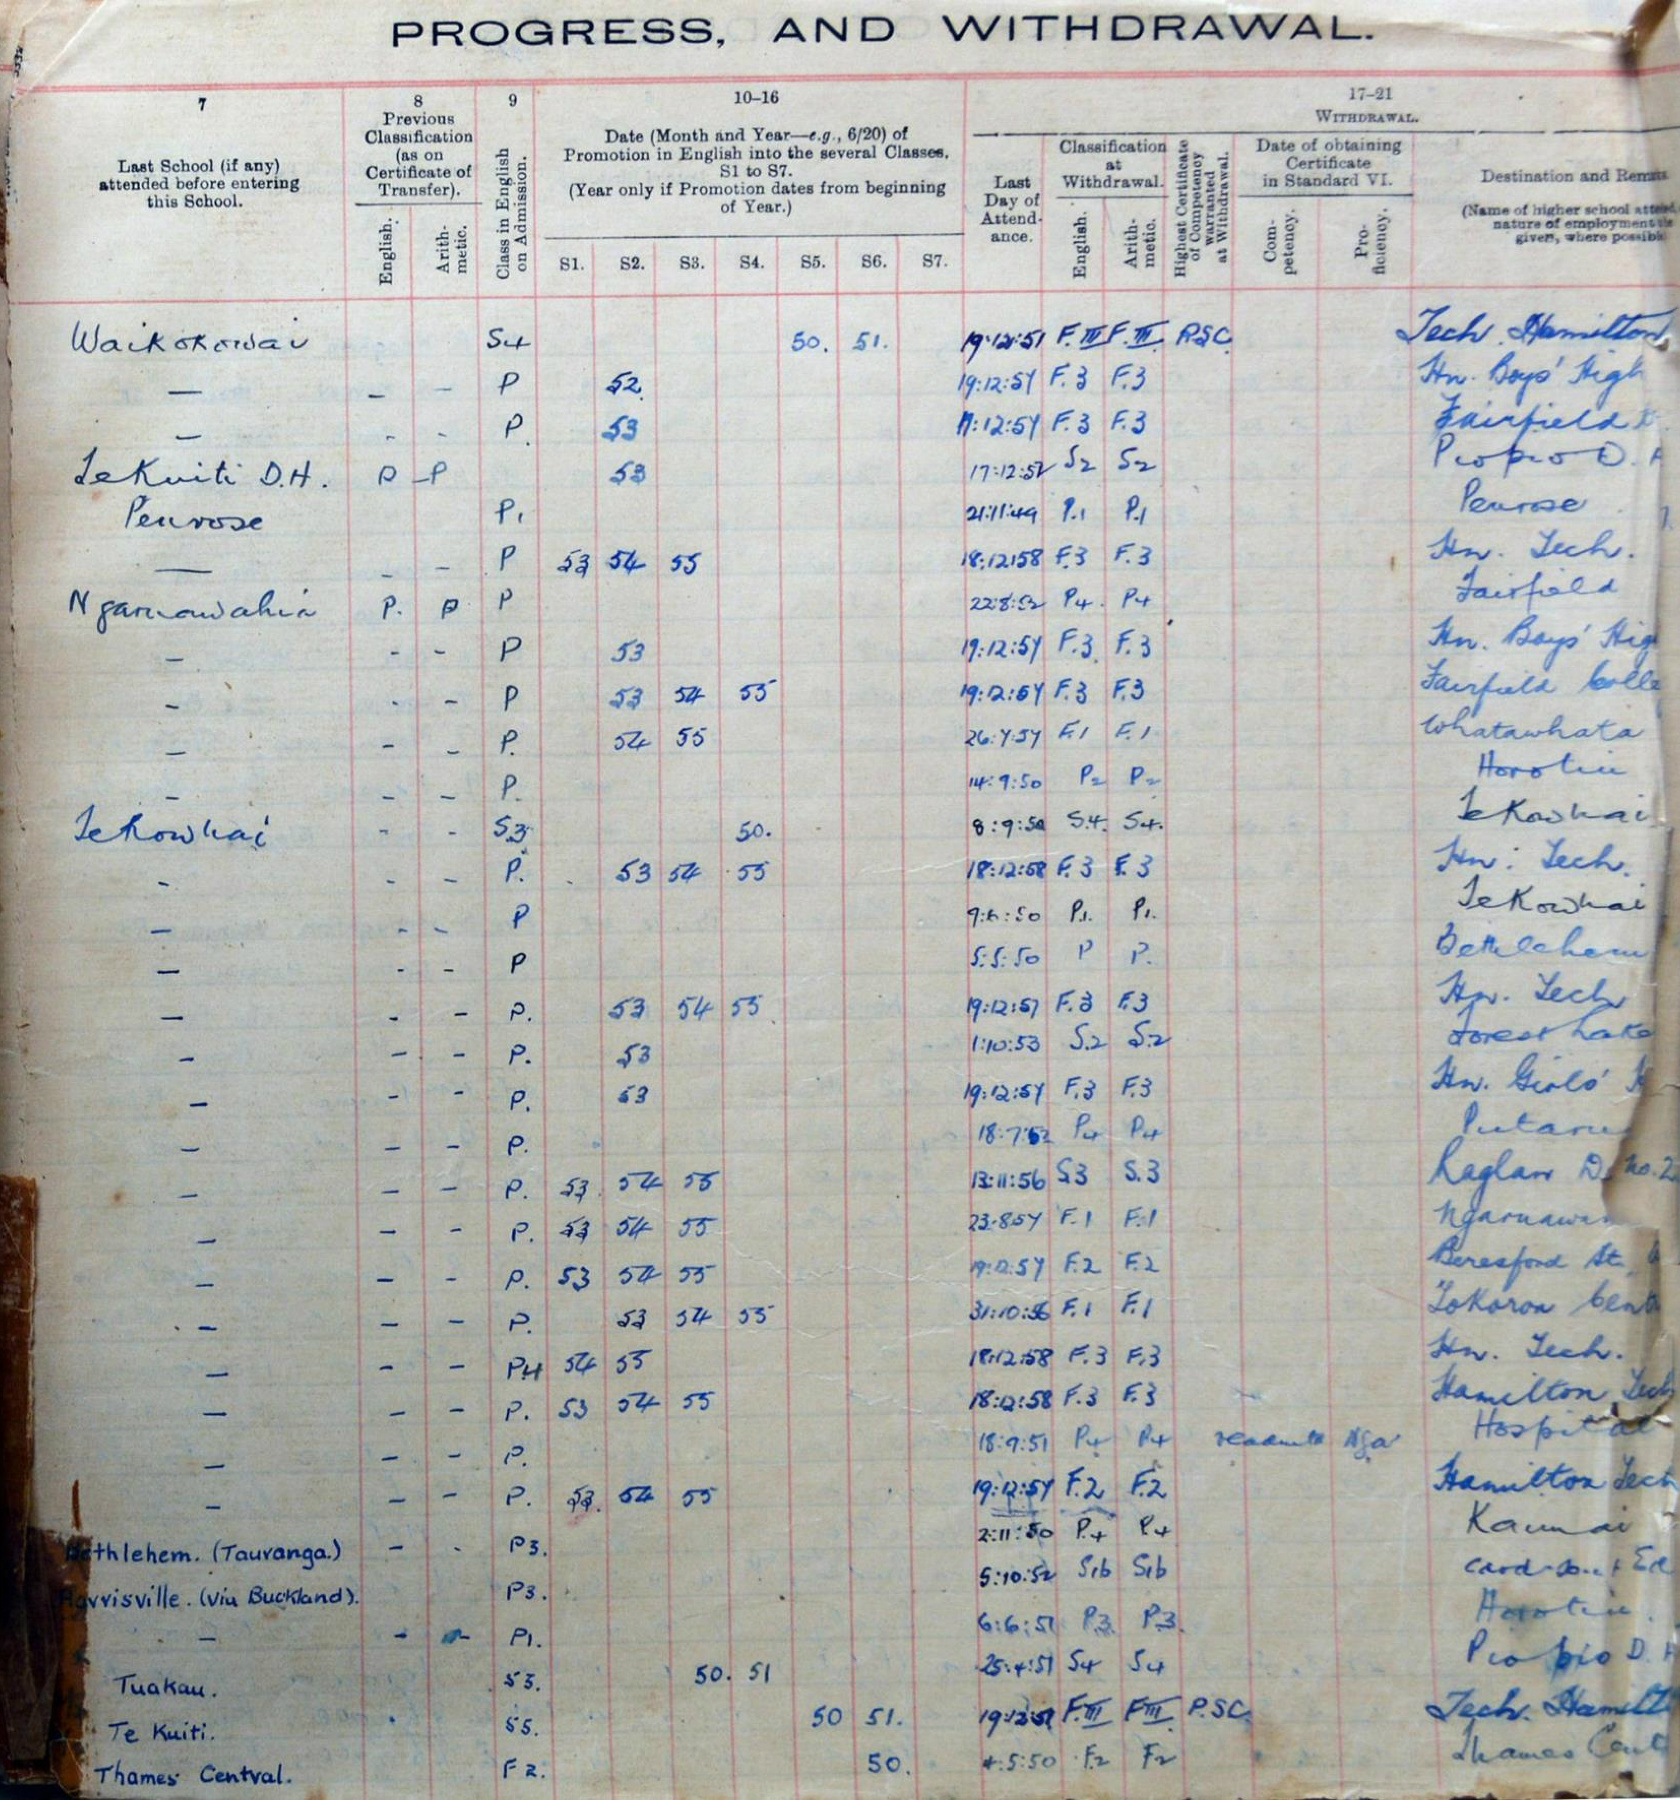 PROGRESS, AND WITHDRAWAL.
7 8 9 10–16 17–21
Last School (if any) attended before entering this School.
Previous Classification (as on Certificate of Transfer).
English. Arith-metic.
Class in English on Admission.
Date (Month and Year—e.g., 6/20) of Promotion in English into the several Classes, S1 to S7.
(Year only if Promotion dates from beginning of Year.)
S1. S2. S3. S4. S5. S6. S7.
WITHDRAWAL.
Last Day of Attend-ance.
Classification at Withdrawal.
English. Arith-metic.
Highest Certificate of Competency warranted at Withdrawal.
Date of obtaining Certificate in Standard VI.
Com-petency. Pro-ficiency.
Destination and
(Name of higher school
nature of employment
given, where possible
Waikokowai S4 50. 51. 19:12:51 F.III F.III P.S.C. Tech. Hamilton
— – – P 52. 19:12:57 F.3 F.3 Hn. Boys' High
— - - P. 53 :12:57 F.3 F.3 Fairfield
TeKuiti D.H. P P 53 17:12:52 S2 S2 Piopio D.
Penrose P1 21:11:49 P.1 P.1 Penrose
— – – P 53 54 55 18:12:58 F.3 F.3 Hn. Tech.
Ngaruawahia P. P P 22:8:52 P4 P4 Fairfield
– - – P 53 19:12:57 F.3. F.3 Hn. Boys' Hig
– - – P 53 54 55 19:12:57 F.3 F.3 Fairfield Colle
– – – P. 54 55 26:7:57 F.1 F.1 Whatawhata
– – – P. 14:9:50 P2 P2 Horotiu
TeKowhai - - S3 50. 8:9:50 S.4. S4. TeKowhai
- - – P. 53 54 55 18:12:58 F.3 F.3 Hn. Tech.
– - - P 9:6:50 P1. P1. TeKowhai
– - – P 5:5:50 P P. Bethlehem
– - – P. 53 54 55 19:12:57 F.3 F.3 Hn. Tech
– – – P. 53 1:10:53 S.2 S.2 Forest Lake
– - – P. 53 19:12:57 F.3 F.3 Hn. Girls'
– – – P. 18:7:52 P4 P4
– – – P. 53 54 55 13:11:56 S3 S.3 Raglan D.
– – – P. 53 54 55 23:8:57 F.1 F.1
– – – P. 53 54 55 19:12:57 F.2 F.2 Beresford St.
– – – P. 53 54 55 31:10:56 F.1 F.1 Tokoroa Cent
– – – P4 54 55 18:12:58 F.3 F.3 Hn. Tech.
– – – P. 53 54 55 18:12:58 F.3 F.3 Hamilton Tech
– – – P. 18:9:51 P4 P4 Hospital
– – – P. 53. 54 55 19:12:57 F.2 F.2 Hamilton Tech
thlehem. (Tauranga.) – . P3. 2:11:50 P.4 P.4 Kaimai
rrisville. (via Buckland). P3. 5:10:52 S1b S1b
– - - P1. 6:6:51 P3. P3. Horotiu
Tuakau. S3. 50. 51 25:4:51 S4 S4 Piopio D.
Te Kuiti. S5. 50 51. 19:12:51 F.III F.III P.S.C. Tech. Hamilt
Thames Central. F2. 50. 4:5:50 F2 F2 Thames Cent